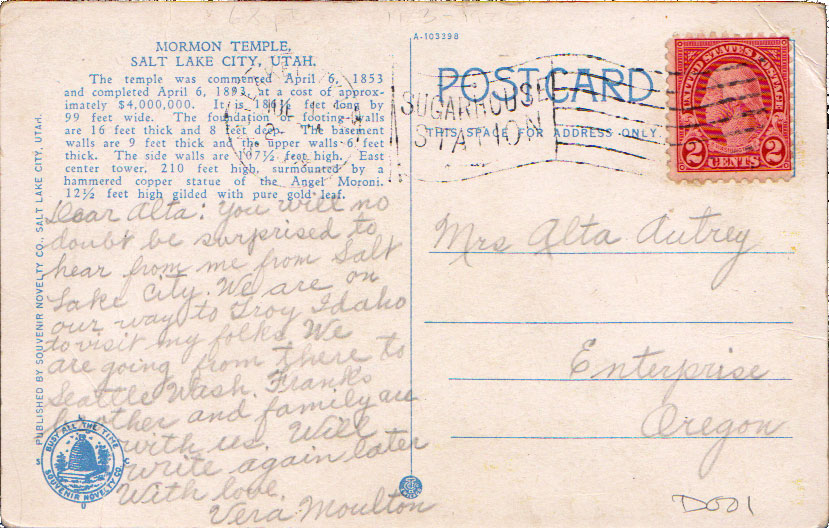 A-103398
MORMON TEMPLE,
SALT LAKE CITY, UTAH.
The temple was commenced April 6, 1853
and completed April 6, 1893, at a cost of approx-
imately $4,000,000. It is 186½ feet long by
99 feet wide. The foundation or footing walls
are 16 feet thick and 8 feet deep. The basement
walls are 9 feet thick and the upper walls 6 feet
thick. The side walls are 107½ feet high. East
center tower, 210 feet high, surmounted by a
hammered copper statue of the Angel Moroni.
12½ feet high gilded with pure gold leaf.
Dear Alta: You will no
doubt be surprised to
hear from me from Salt
Lake City. We are on
our way to Troy Idaho
to visit my folks We
are going from there to
Seattle Wash. Franks
brother and family are
with us. Will
write again later
With love,
Vera Moulton
PUBLISHED BY SOUVENIR NOVELTY CO. SALT LAKE CITY, UTAH.
BUSY ALL THE TIME
SOUVENIR NOVELTY CO.
S L C
U
POST CARD
THIS SPACE FOR ADDRESS ONLY
SUGARHOUSE
STATION
UNITED STATES POSTAGE
2 CENTS 2
Mrs Alta Autrey
Enterprise
Oregon
D001